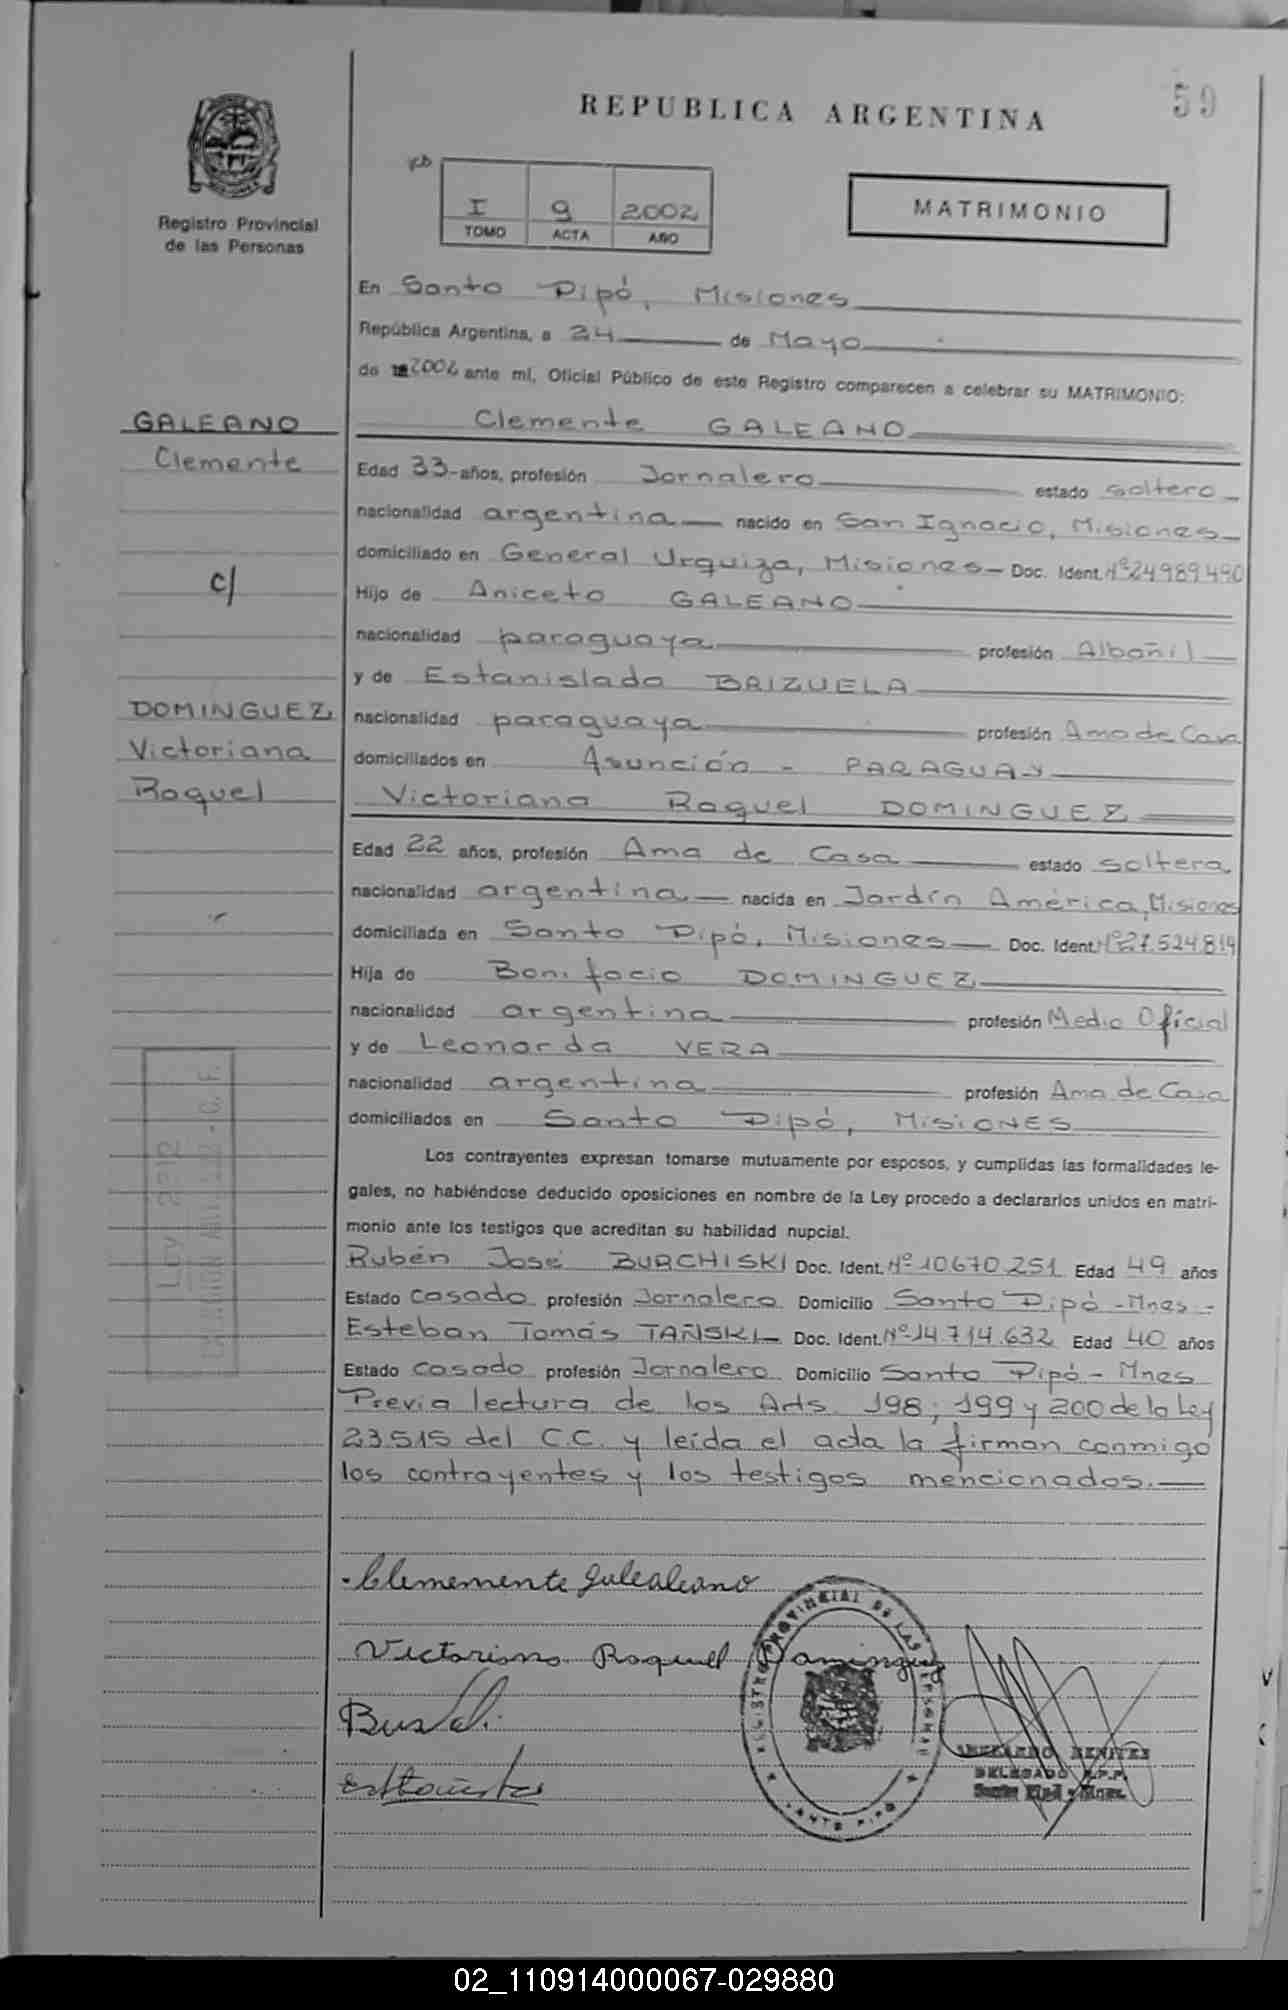 59
REPUBLICA ARGENTINA
Registro Provincial
de las Personas
I 9 2002
TOMO ACTA AÑO
MATRIMONIO
En Santo Pipó, Misiones
República Argentina, a 24 de Mayo
de 2002 ante mí, Oficial Público de este Registro comparecen a celebrar su MATRIMONIO:
GALEANO
Clemente
c/
DOMINGUEZ
Victoriana
Raquel
Clemente GALEANO
Edad 33 años, profesión Jornalero estado soltero
nacionalidad argentina nacido en San Ignacio, Misiones
domiciliado en General Urquiza, Misiones Doc. Ident. Nº 24989490
Hijo de Aniceto GALEANO
nacionalidad paraguaya profesión Albañil
y de Estanislada BRIZUELA
nacionalidad paraguaya profesión Ama de Casa
domiciliados en Asunción - PARAGUAY
Victoriana Raquel DOMINGUEZ
Edad 22 años, profesión Ama de Casa estado soltera
nacionalidad argentina nacida en Jardín América, Misiones
domiciliada en Santo Pipó, Misiones Doc. Ident. Nº 27.524.814
Hija de Bonifacio DOMINGUEZ
nacionalidad argentina profesión Medio Oficial
y de Leonarda VERA
nacionalidad argentina profesión Ama de Casa
domiciliados en Santo Pipó, MISIONES
Los contrayentes expresan tomarse mutuamente por esposos, y cumplidas las formalidades le-
gales, no habiéndose deducido oposiciones en nombre de la Ley procedo a declararlos unidos en matri-
monio ante los testigos que acreditan su habilidad nupcial.
Rubén José BURCHISKI Doc. Ident. Nº 10670251 Edad 49 años
Estado casado profesión Jornalero Domicilio Santo Pipó - Mnes -
Esteban Tomás TAÑSKI Doc. Ident. Nº 14714.632 Edad 40 años
Estado casado profesión Jornalero Domicilio Santo Pipó - Mnes
Previa lectura de los Arts. 198; 199 y 200 de la Ley
23.515 del C.C. y leída el acta la firman conmigo
los contrayentes y los testigos mencionados.
Clememente Galealeano
Victoriana Raquel Dominguez
REGISTRO PROVINCIAL DE LAS PERSONAS
SANTO PIPO
BENITEZ
DELEGADO R.P.P.
Santo Pipó - Mnes.
Ley
02_110914000067-029880